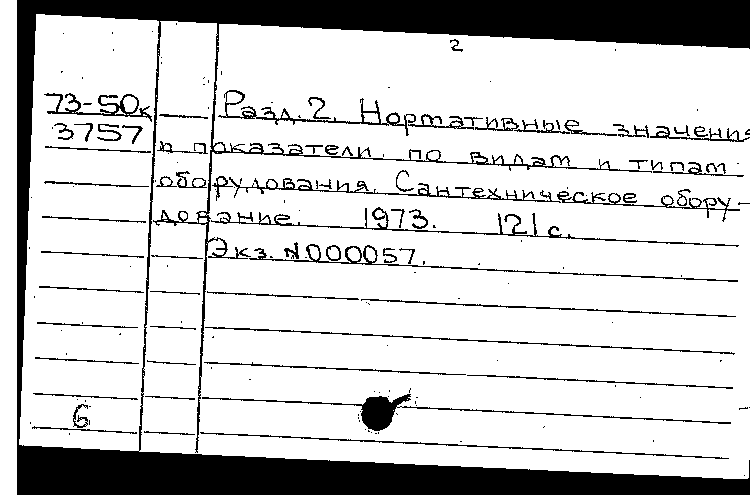 2
73-50к Разд. 2. Нормативные значения
3757 и показатели по видам и типам
оборудования. Сантехническое обору-
дование. 1973. 121 с.
Экз. N000057.
6